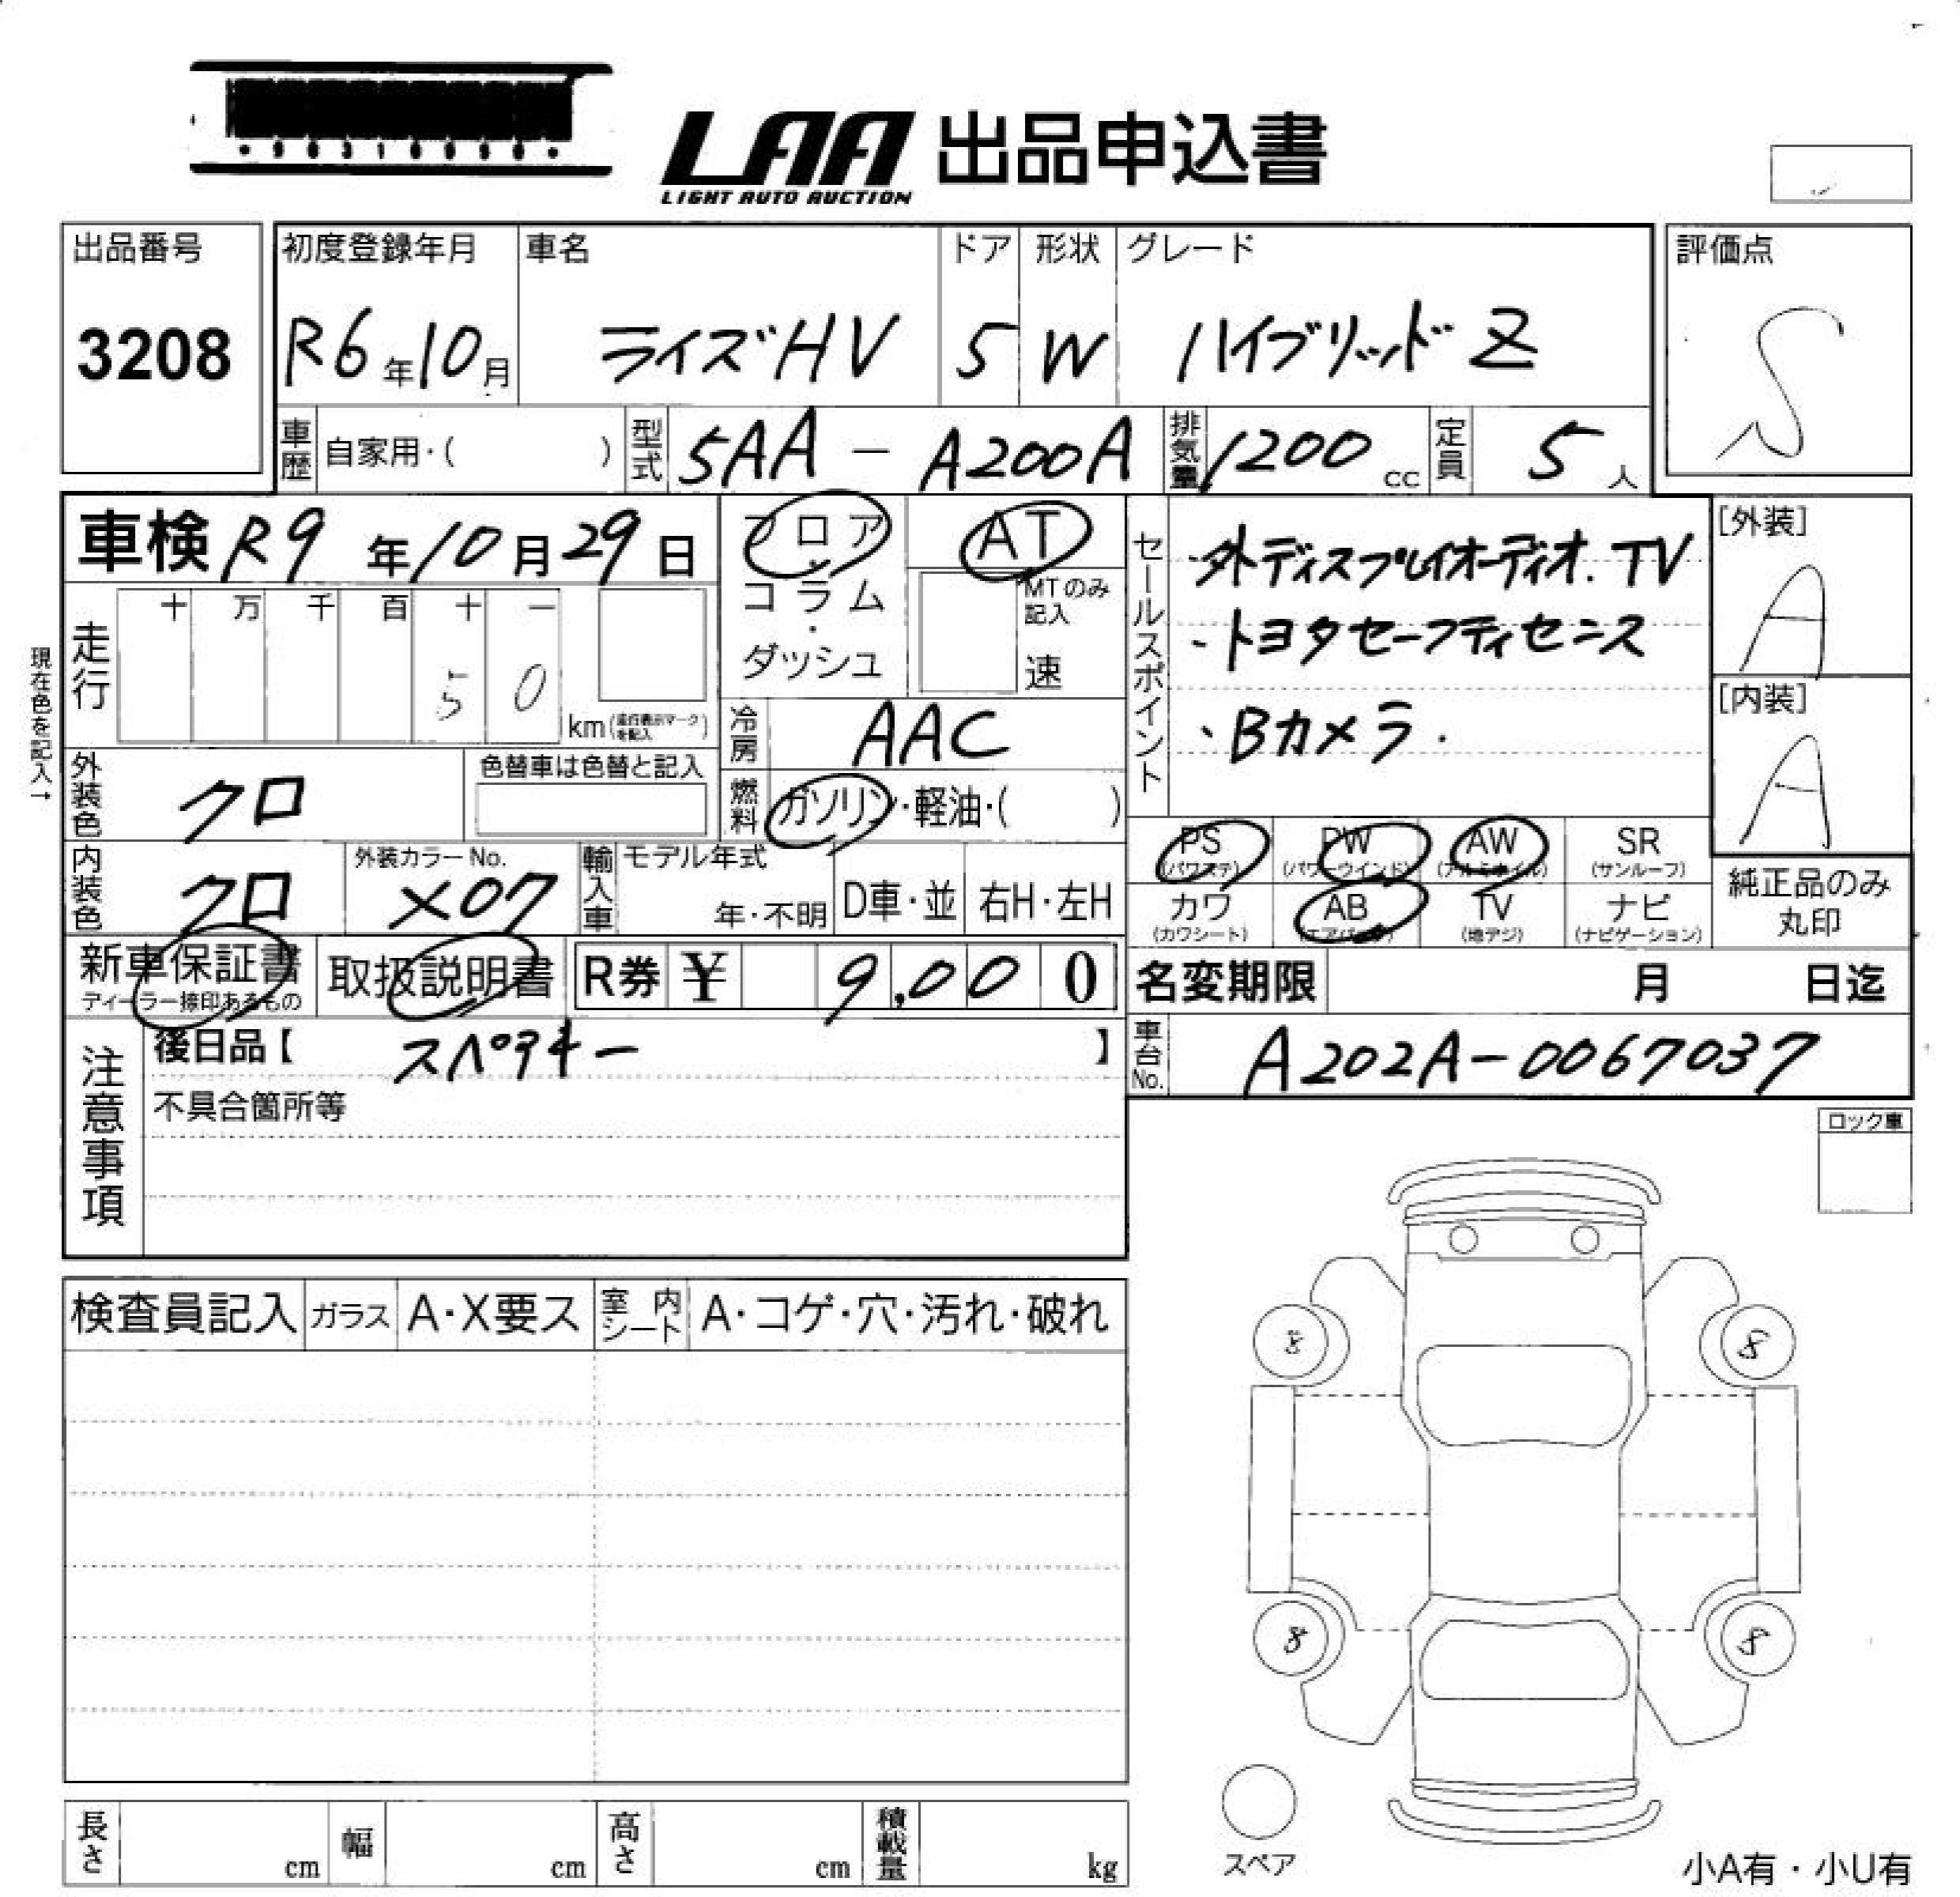 LAA 出品申込書
LIGHT AUTO AUCTION
出品番号
3208
初度登録年月
R6年10月
車名
ライズHV
ドア
5
形状
W
グレード
ハイブリッド Z
評価点
S
車歴 自家用・( )
型式 5AA - A200A
排気量 1200 cc
定員 5 人
車検 R9年10月29日
フロア・コラム・ダッシュ
AT
MTのみ記入
速
セールスポイント
・外ディスプレイオーディオ.TV
・トヨタセーフティセンス
・Bカメラ.
[外装]
A
[内装]
A
現在色を記入→
走行
十 万 千 百 十 一
5 0 km (走行表示マークを記入)
冷房 AAC
外装色 クロ
色替車は色替と記入
燃料 ガソリン・軽油・( )
内装色 クロ
外装カラーNo.
X07
輸入車
モデル年式
年・不明
D車・並
右H・左H
PS (パワステ)
PW (パワーウインド)
AW (アルミホイル)
SR (サンルーフ)
カワ (カワシート)
AB (エアバッグ)
TV (地デジ)
ナビ (ナビゲーション)
純正品のみ
丸印
新車保証書
ディーラー捺印あるもの
取扱説明書
R券 ¥ 9,000
名変期限 月 日迄
車台No. A202A-0067037
注意事項
後日品【 スペアキー 】
不具合箇所等
ロック車
検査員記入
ガラス A・X要ス
室内シート A・コゲ・穴・汚れ・破れ
8 8
8 8
スペア
長さ cm
幅 cm
高さ cm
積載量 kg
小A有・小U有